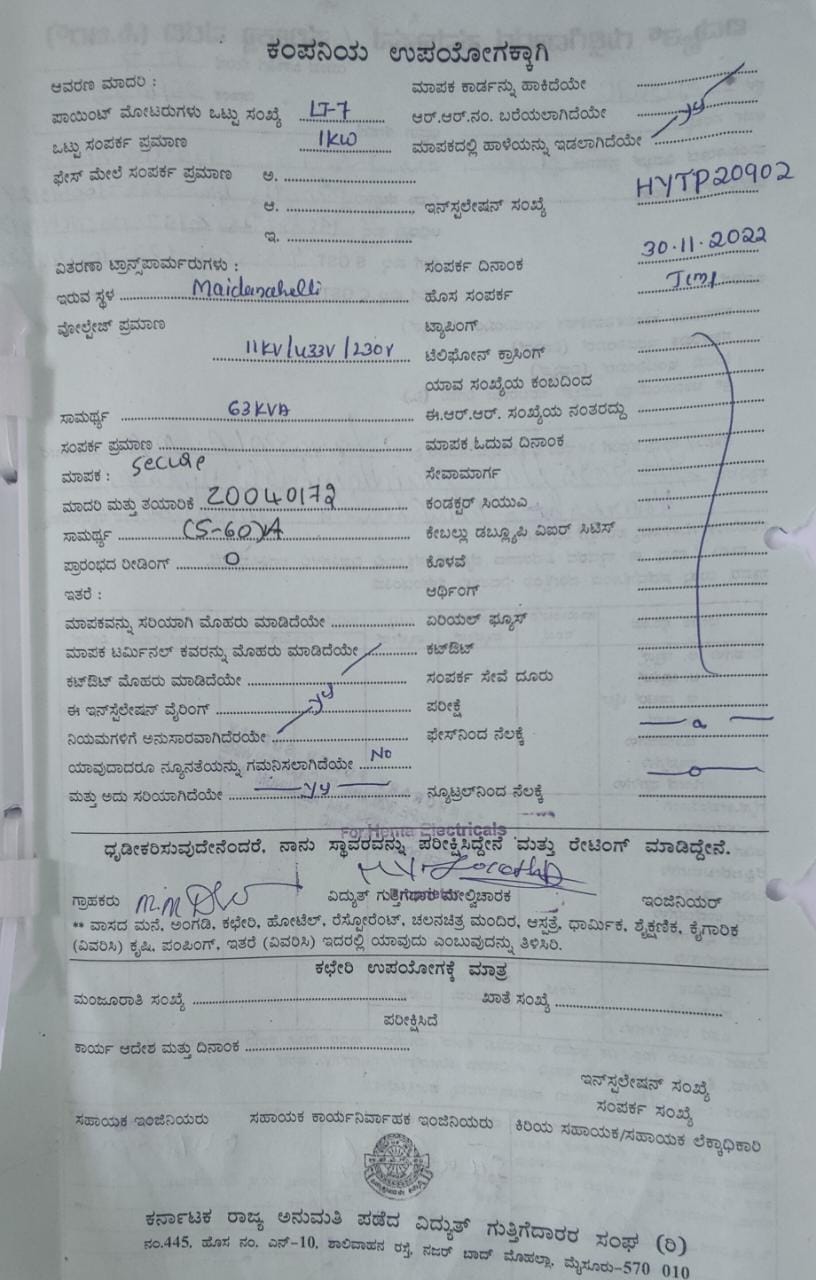 ಕಂಪನಿಯ ಉಪಯೋಗಕ್ಕಾಗಿ
ಆವರಣ ಮಾದರಿ : ಮಾಪಕ ಕಾರ್ಡನ್ನು ಹಾಕಿದೆಯೇ
ಪಾಯಿಂಟ್ ಮೋಟರುಗಳು ಒಟ್ಟು ಸಂಖ್ಯೆ LT-7 ಆರ್.ಆರ್.ನಂ. ಬರೆಯಲಾಗಿದೆಯೇ
ಒಟ್ಟು ಸಂಪರ್ಕ ಪ್ರಮಾಣ 1KW ಮಾಪಕದಲ್ಲಿ ಹಾಳೆಯನ್ನು ಇಡಲಾಗಿದೆಯೇ
ಫೇಸ್ ಮೇಲೆ ಸಂಪರ್ಕ ಪ್ರಮಾಣ ಅ.
ಆ. ಇನ್‌ಸ್ಟಲೇಷನ್ ಸಂಖ್ಯೆ HYTP20902
ಇ.
ವಿತರಣಾ ಟ್ರಾನ್ಸ್‌ಪಾರ್ಮರುಗಳು : ಸಂಪರ್ಕ ದಿನಾಂಕ 30.11.2022
ಇರುವ ಸ್ಥಳ Maidanahelli ಹೊಸ ಸಂಪರ್ಕ
ವೋಲ್ಟೇಜ್ ಪ್ರಮಾಣ ಟ್ಯಾಪಿಂಗ್
11KV/433V/230V ಟೆಲಿಫೋನ್ ಕ್ರಾಸಿಂಗ್
ಯಾವ ಸಂಖ್ಯೆಯ ಕಂಬದಿಂದ
ಸಾಮರ್ಥ್ಯ 63KVA ಈ.ಆರ್.ಆರ್. ಸಂಖ್ಯೆಯ ನಂತರದ್ದು
ಸಂಪರ್ಕ ಪ್ರಮಾಣ ಮಾಪಕ ಓದುವ ದಿನಾಂಕ
ಮಾಪಕ : Secure ಸೇವಾಮಾರ್ಗ
ಮಾದರಿ ಮತ್ತು ತಯಾರಿಕೆ 20040172 ಕಂಡಕ್ಟರ್ ಸಿಯುಎ
ಸಾಮರ್ಥ್ಯ (5-60)A ಕೇಬಲ್ಲು ಡಬ್ಲ್ಯೂಪಿ ವಿಐರ್ ಸಿಟಿಸ್
ಪ್ರಾರಂಭದ ರೀಡಿಂಗ್ 0 ಕೊಳವೆ
ಇತರೆ : ಆರ್ಥಿಂಗ್
ಮಾಪಕವನ್ನು ಸರಿಯಾಗಿ ಮೊಹರು ಮಾಡಿದೆಯೇ ಏರಿಯಲ್ ಫ್ಯೂಸ್
ಮಾಪಕ ಟರ್ಮಿನಲ್ ಕವರನ್ನು ಮೊಹರು ಮಾಡಿದೆಯೇ ಕಟ್‌ಔಟ್
ಕಟ್‌ಔಟ್ ಮೊಹರು ಮಾಡಿದೆಯೇ ಸಂಪರ್ಕ ಸೇವೆ ದೂರು
ಈ ಇನ್‌ಸ್ಟೆಲೇಷನ್ ವೈರಿಂಗ್ ಪರೀಕ್ಷೆ
ನಿಯಮಗಳಿಗೆ ಅನುಸಾರವಾಗಿದೆರಯೇ ಫೇಸ್‌ನಿಂದ ನೆಲಕ್ಕೆ
ಯಾವುದಾದರೂ ನ್ಯೂನತೆಯನ್ನು ಗಮನಿಸಲಾಗಿದೆಯೇ No
ಮತ್ತು ಅದು ಸರಿಯಾಗಿದೆಯೇ ನ್ಯೂಟ್ರಲ್‌ನಿಂದ ನೆಲಕ್ಕೆ
For Hema Electricals
ಧೃಡೀಕರಿಸುವುದೇನೆಂದರೆ, ನಾನು ಸ್ಥಾವರವನ್ನು ಪರೀಕ್ಷಿಸಿದ್ದೇನೆ ಮತ್ತು ರೇಟಿಂಗ್ ಮಾಡಿದ್ದೇನೆ.
ಗ್ರಾಹಕರು ವಿದ್ಯುತ್ ಗುತ್ತಿಗೆದಾರ ಮೇಲ್ವಿಚಾರಕ ಇಂಜಿನಿಯರ್
** ವಾಸದ ಮನೆ, ಅಂಗಡಿ, ಕಛೇರಿ, ಹೋಟೆಲ್, ರೆಸ್ಪೋರೆಂಟ್, ಚಲನಚಿತ್ರ ಮಂದಿರ, ಆಸ್ಪತ್ರೆ, ಧಾರ್ಮಿಕ, ಶೈಕ್ಷಣಿಕ, ಕೈಗಾರಿಕ
(ವಿವರಿಸಿ) ಕೃಷಿ, ಪಂಪಿಂಗ್, ಇತರೆ (ವಿವರಿಸಿ) ಇದರಲ್ಲಿ ಯಾವುದು ಎಂಬುವುದನ್ನು ತಿಳಿಸಿರಿ.
ಕಛೇರಿ ಉಪಯೋಗಕ್ಕೆ ಮಾತ್ರ
ಮಂಜೂರಾತಿ ಸಂಖ್ಯೆ ಖಾತೆ ಸಂಖ್ಯೆ
ಪರೀಕ್ಷಿಸಿದೆ
ಕಾರ್ಯ ಆದೇಶ ಮತ್ತು ದಿನಾಂಕ
ಇನ್‌ಸ್ಟಲೇಷನ್ ಸಂಖ್ಯೆ
ಸಂಪರ್ಕ ಸಂಖ್ಯೆ
ಸಹಾಯಕ ಇಂಜಿನಿಯರು ಸಹಾಯಕ ಕಾರ್ಯನಿರ್ವಾಹಕ ಇಂಜಿನಿಯರು ಕಿರಿಯ ಸಹಾಯಕ/ಸಹಾಯಕ ಲೆಕ್ಕಾಧಿಕಾರಿ
ಕರ್ನಾಟಕ ರಾಜ್ಯ ಅನುಮತಿ ಪಡೆದ ವಿದ್ಯುತ್ ಗುತ್ತಿಗೆದಾರರ ಸಂಘ (ರಿ)
ನಂ.445, ಹೊಸ ನಂ. ಎನ್-10, ಶಾಲಿವಾಹನ ರಸ್ತೆ, ನಜರ್ ಬಾದ್ ಮೊಹಲ್ಲಾ, ಮೈಸೂರು-570 010